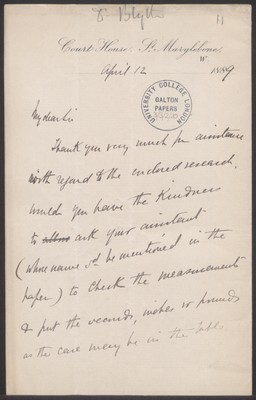 Blyth
Court House, St. Marylebone,
W
April 12 1889
UNIVERSITY COLLEGE LONDON
GALTON
PAPERS
My dear Sir
Thank you very much for assistance
with regard to the inclosed research.
would you have the kindness
to ask your assistant
(whose name shd be mentioned in the
paper) to check the measurements
& put the records, inches or pounds
as the case may be in the table